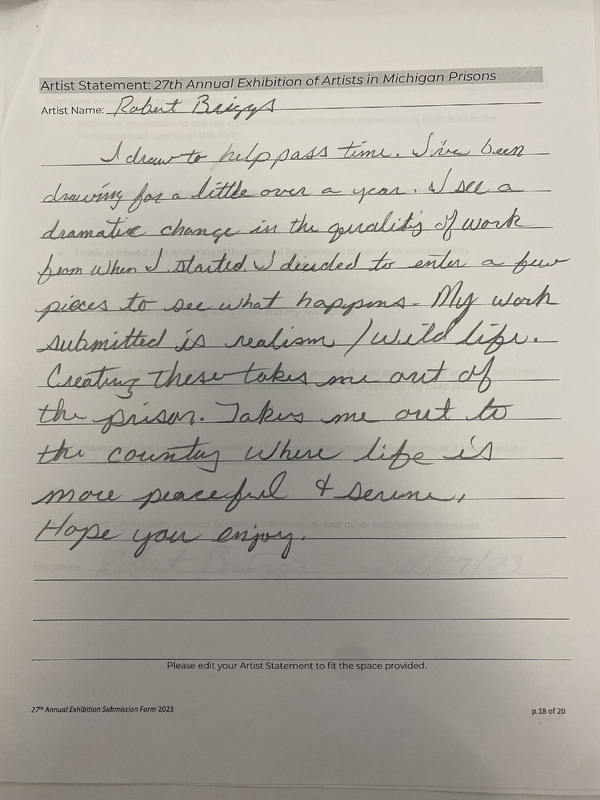 Artist Statement: 27th Annual Exhibition of Artists in Michigan Prisons
Artist Name: Robert Briggs
I draw to help pass time. I've been
drawing for a little over a year. I see a
dramatic change in the quality of work
from when I started. I decided to enter a few
pieces to see what happens. My work
submitted is realism / wild life.
Creating these takes me out of
the prison. Takes me out to
the country where life is
more peaceful & serene.
Hope you enjoy.
Please edit your Artist Statement to fit the space provided.
27th Annual Exhibition Submission Form 2023
p.18 of 20